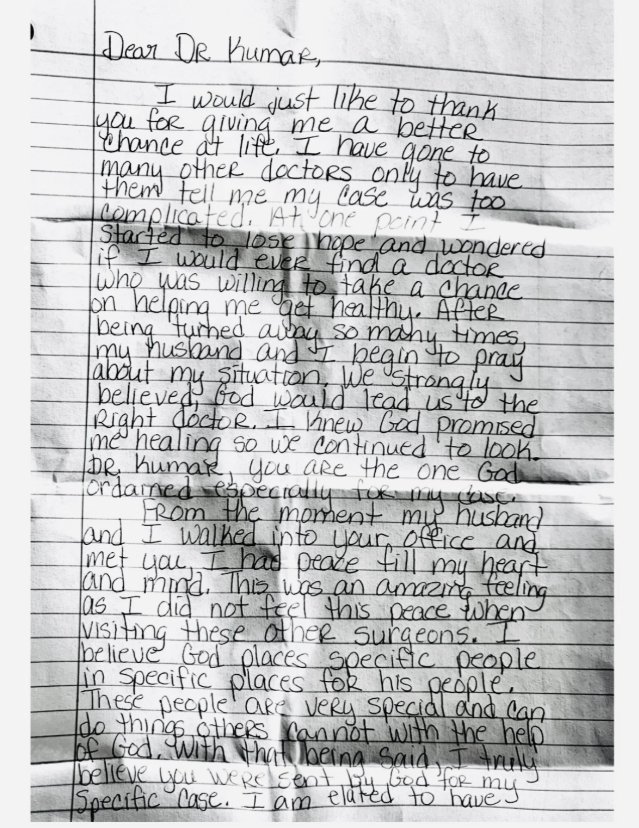 Dear DR Kumar,
I would just like to thank
you for giving me a better
chance at life. I have gone to
many other doctors only to have
them tell me my case was too
complicated. At one point I
started to lose hope and wondered
if I would ever find a doctor
who was willing to take a chance
on helping me get healthy. After
being turned away so many times,
my husband and I begin to pray
about my situation. We strongly
believed God would lead us to the
Right doctor. I knew God promised
me healing so we continued to look.
DR. Kumar, you are the one God
ordained especially for my case.
From the moment my husband
and I walked into your office and
met you, I had peace fill my heart
and mind. This was an amazing feeling
as I did not feel this peace when
visiting these other surgeons. I
believe God places specific people
in specific places for his people.
These people are very special and can
do things others cannot with the help
of God. With that being said, I truly
believe you were sent by God for my
specific case. I am elated to have